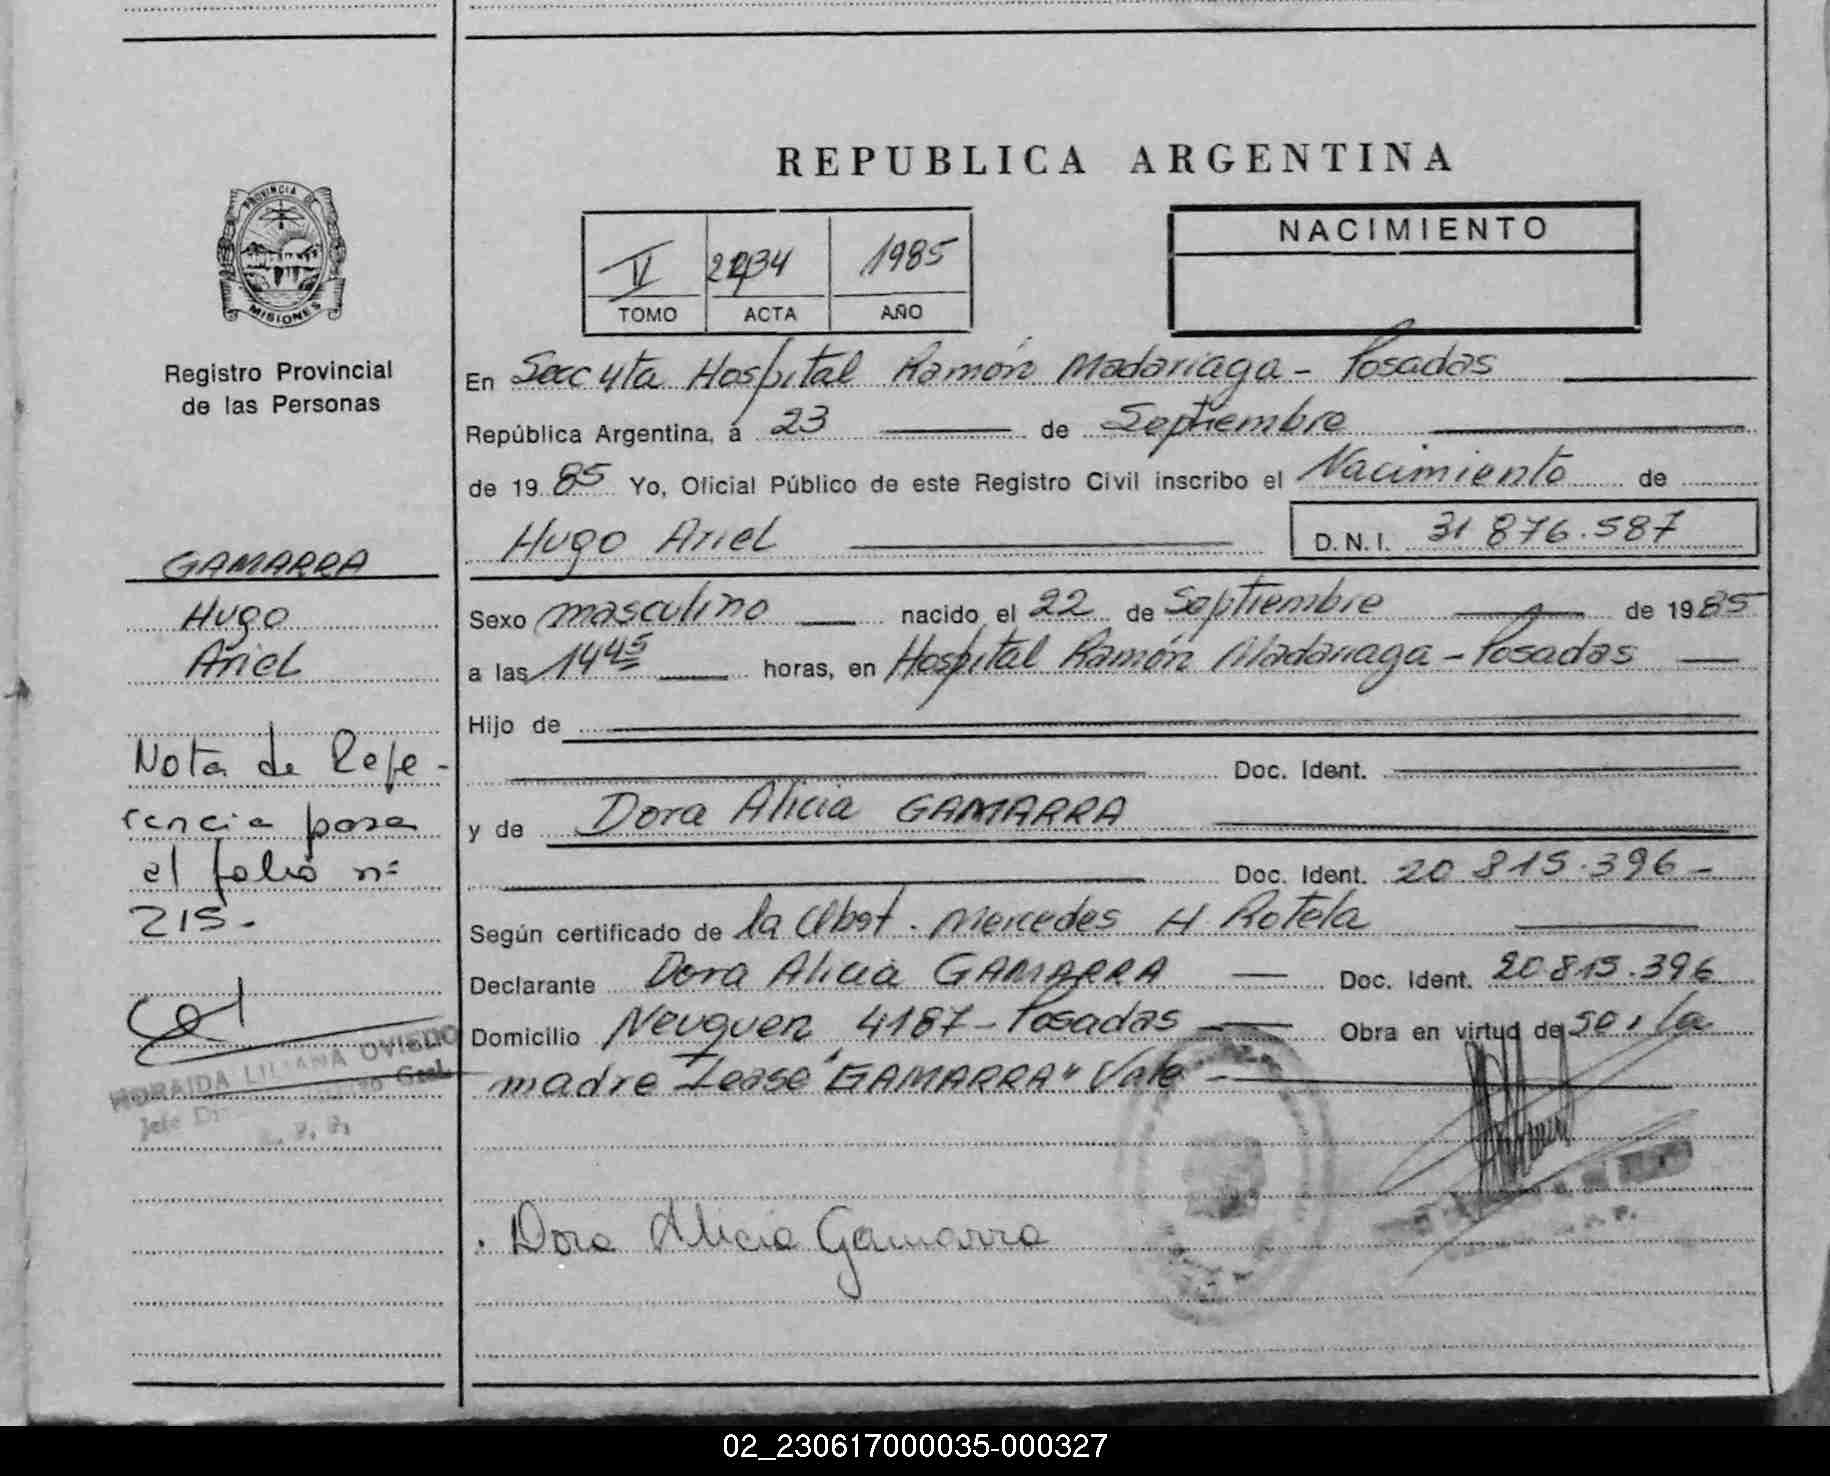 REPUBLICA ARGENTINA
PROVINCIA DE
MISIONES
Registro Provincial
de las Personas
II 1985
TOMO ACTA AÑO
NACIMIENTO
En Secc 4ta Hospital Ramón Madariaga - Posadas
República Argentina, a 23 de Septiembre
de 19 85 Yo, Oficial Público de este Registro Civil inscribo el Nacimiento de
Hugo Ariel D.N.I. 31 876.587
GAMARRA
Hugo
Ariel
Sexo masculino nacido el 22 de Septiembre de 19 85
a las 14 45 horas, en Hospital Ramón Madariaga - Posadas
Hijo de
Doc. Ident.
y de Dora Alicia GAMARRA
Doc. Ident. 20 815.396 -
Según certificado de la Obst. Mercedes H Rotela
Declarante Dora Alicia GAMARRA Doc. Ident. 20 815.396
Domicilio Neuquen 4187 - Posadas Obra en virtud de la
madre Lease "GAMARRA" Vale
Dora Alicia Gamarra
Nota de Refe-
rencia pasa
el folio nº
215.-
LILIANA OVIEDO
02_230617000035-000327